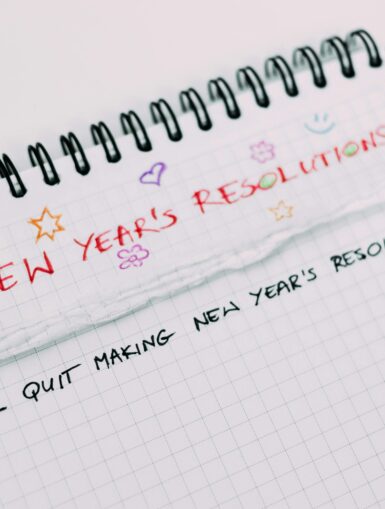 EW YEAR'S RESOLUTIONS
- QUIT MAKING NEW YEAR'S RESO